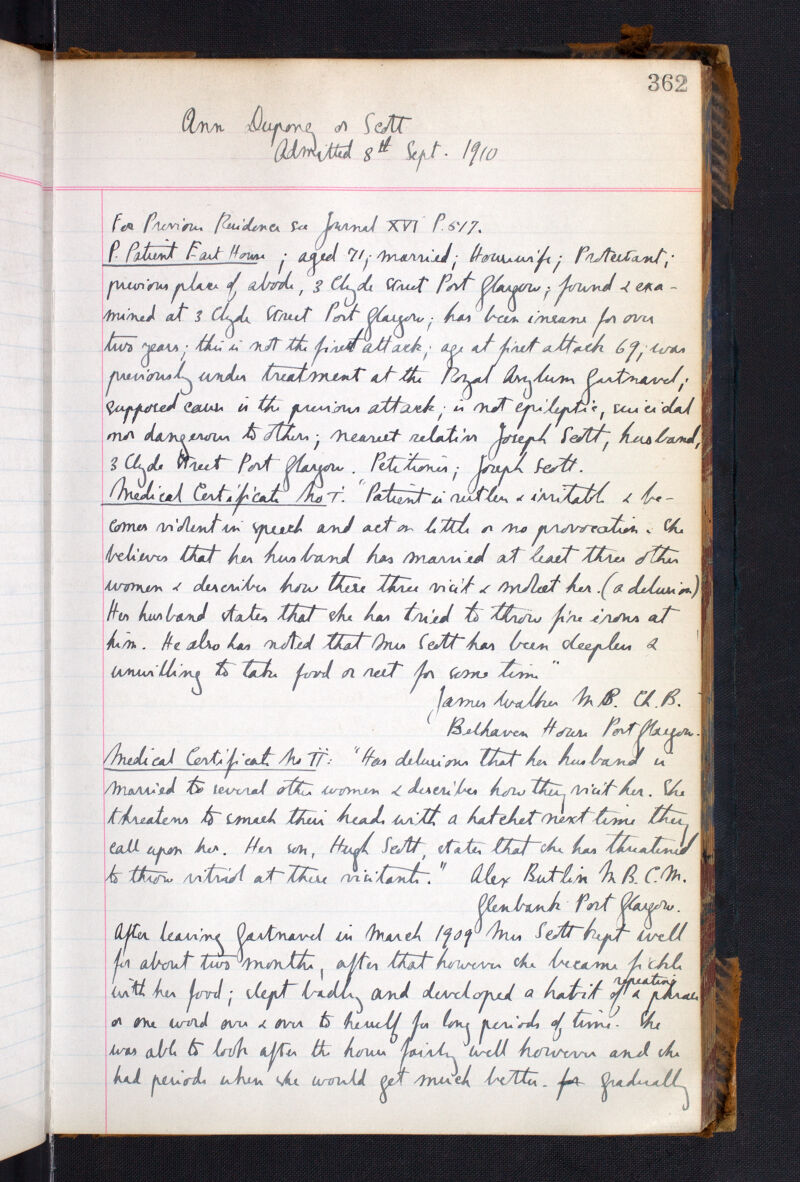 362
Ann Dupong or Scott
Admitted 8th Sept. 1910
For Previous Residence see Journal XVI P. 517.
P. Patient East House ; aged 71; married; Housewife; Protestant;
previous place of abode, 3 Clyde Street Port Glasgow; found & exa-
mined at 3 Clyde Street Port Glasgow; has been insane for over
two years; this is not the first attack; age at first attack 69; was
previously under treatment at the Royal Asylum Gartnavel;
supposed cause is the previous attack; is not epileptic, suicidal
nor dangerous to others; nearest relative Joseph Scott, husband,
3 Clyde Street Port Glasgow. Petitioner; Joseph Scott.
Medical Certificate No I. "Patient is restless & irritable & be-
comes violent in speech and act on little or no provocation. She
believes that her husband has married at least three other
women & describes how these three visit & molest her. (a delusion)
Her husband states that she has tried to throw fire irons at
him. He also has noted that Mrs Scott has been sleepless &
unwilling to take food or rest for some time"
James Walker M.B. Ch.B.
Belhaven House Port Glasgow.
Medical Certificate No II: "Has delusions that her husband is
married to several other women & describes how they visit her. She
threatens to smash their heads with a hatchet next time they
call upon her. Her son, Hugh Scott, states that she has threatened
to throw vitriol at these visitants." Alex Butlin M.B. C.M.
Glenbank Port Glasgow.
After leaving Gartnavel in March 1909 Mrs Scott kept well
for about two months, after that however she became fickle
with her food; slept badly and developed a habit of repeating a phrase
or one word over & over to herself for long periods of time. She
was able to look after the house fairly well however and she
had periods when she would get much better. for gradually